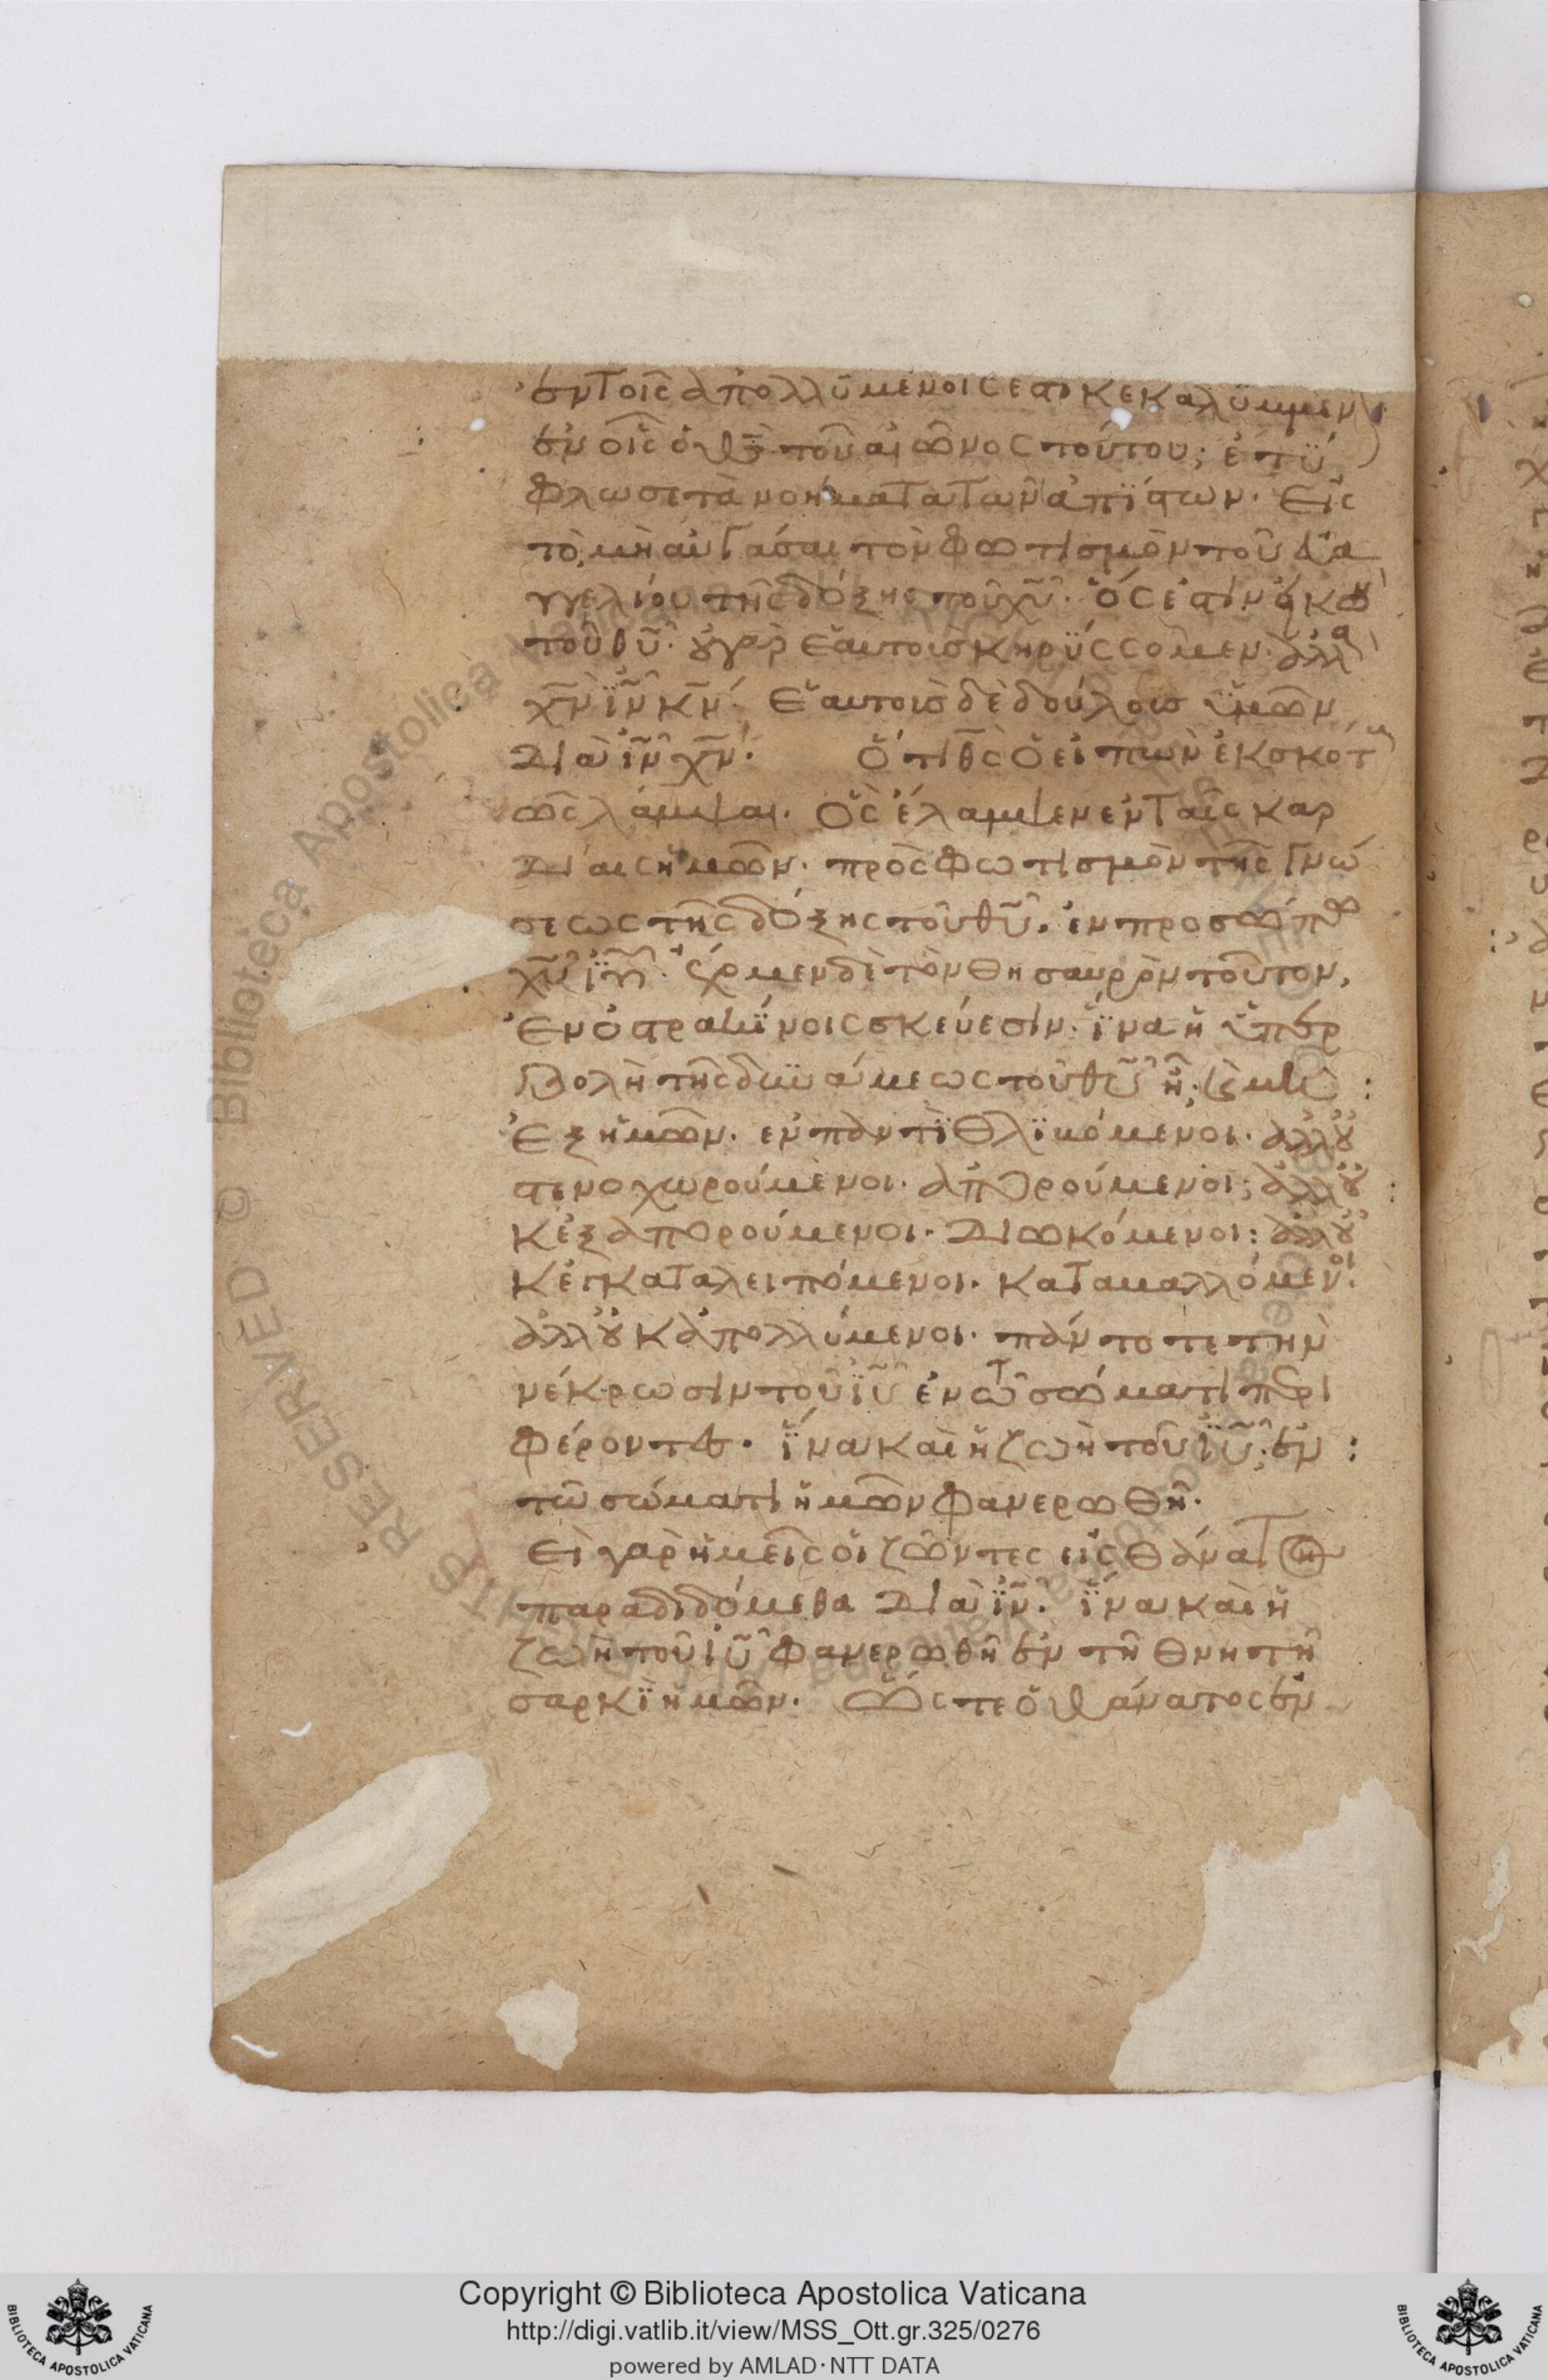 ἐν τοῖς ἀπολλυμένοις ἐστι κεκαλυμμέν
ἐν οἷς ὁ θς τοῦ αἰῶνος τούτου· ἐτύ
φλωσε τὰ νοήματα τῶν ἀπίστων. Εἰς
τὸ μὴ αὐγάσαι τὸν φωτισμὸν τοῦ εὐα
γγελίου τῆς δόξης τοῦ χῦ. ὅς ἐστιν εἰκὼ
τοῦ θῦ. οὐ γὰρ ἑαυτοὺς κηρύσσομεν. ἀλλὰ
χν ιν κν. Ἑαυτοὺς δὲ δούλους ὑμῶν
διὰ ιν χν. Ὅτι θς ὁ εἰπὼν ἐκ σκότ
ῶς λάμψαι. Ὃς ἔλαμψεν ἐν ταῖς καρ
δίαις ἡμῶν. πρὸς φωτισμὸν τῆς γνώ
σεως τῆς δόξης τοῦ θῦ. ἐν προσώπω
χῦ ιῦ. ἔχομεν δὲ τὸν θησαυρὸν τοῦτον,
Ἐν ὀστρακίνοις σκεύεσιν. ἵνα ἡ ὑπερ
βολὴ τῆς δυνάμεως τοῦ θῦ ἦ, καὶ μὴ :
Ἐξ ἡμῶν. ἐν παντὶ θλιβόμενοι. ἀλλ' οὐ
στενοχωρούμενοι. ἀπορούμενοι; ἀλλ' οὐ
κ ἐξαπορούμενοι. Διωκόμενοι: ἀλλ' οὐ
κ ἐγκαταλειπόμενοι. καταβαλλόμενοι.
ἀλλ' οὐκ ἀπολλύμενοι. πάντοτε τὴν
νέκρωσιν τοῦ ιῦ ἐν τῶ σώματι περι
φέροντες. ἵνα καὶ ἡ ζωὴ τοῦ ιῦ, ἐν :
τῶ σώματι ἡμῶν φανερωθῆ.
Εἰ γὰρ ἡμεῖς οἱ ζῶντες εἰς θάνατ
παραδιδόμεθα διὰ ιν. ἵνα καὶ ἡ
ζωὴ τοῦ ιῦ φανερωθῆ ἐν τῆ θνητῆ
σαρκὶ ἡμῶν. Ὥστε ὁ θάνατος ἐν
Copyright © Biblioteca Apostolica Vaticana
http://digi.vatlib.it/view/MSS_Ott.gr.325/0276
powered by AMLAD·NTT DATA